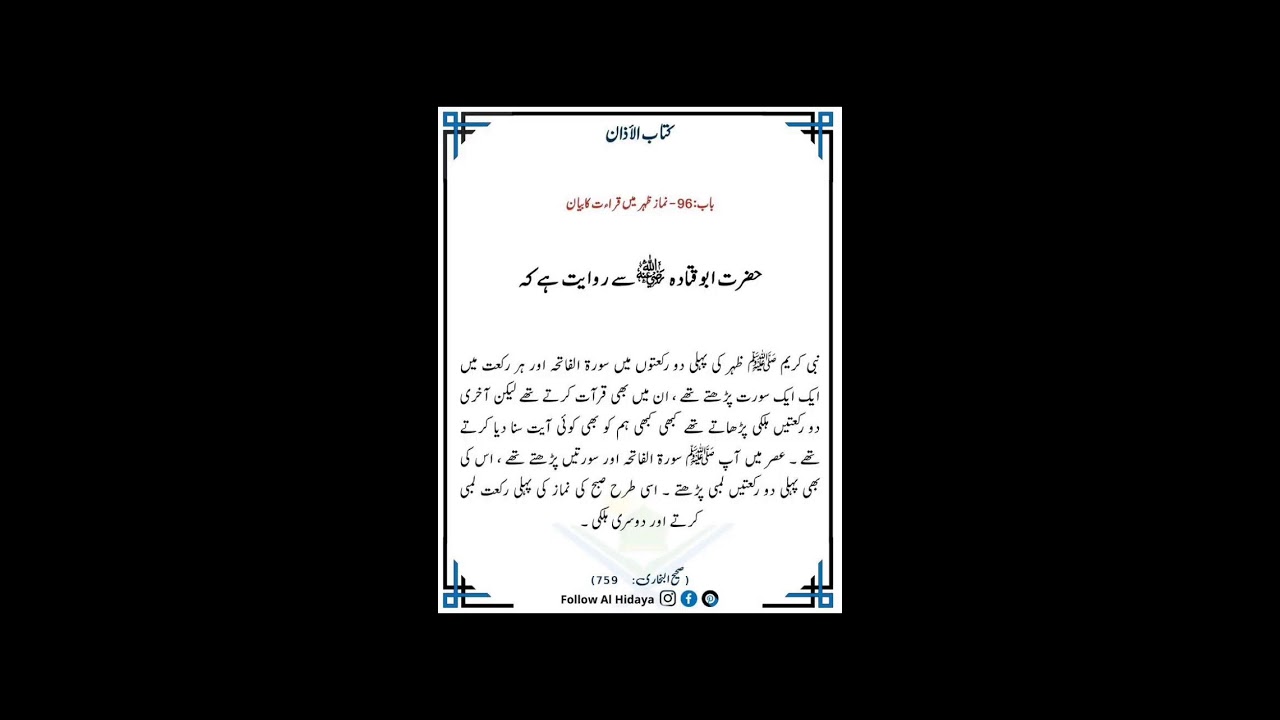 کتاب الأذان
باب:96- نماز ظہر میں قراءت کا بیان
حضرت ابو قتادہ رضی اللہ عنہ سے روایت ہے کہ
نبی کریم ﷺ ظہر کی پہلی دو رکعتوں میں سورۃ الفاتحہ اور ہر رکعت میں
ایک ایک سورت پڑھتے تھے ، ان میں بھی قرآت کرتے تھے لیکن آخری
دو رکعتیں ہلکی پڑھاتے تھے کبھی کبھی ہم کو بھی کوئی آیت سنا دیا کرتے
تھے ۔ عصر میں آپ ﷺ سورۃ الفاتحہ اور سورتیں پڑھتے تھے ، اس کی
بھی پہلی دو رکعتیں لمبی پڑھتے ۔ اسی طرح صبح کی نماز کی پہلی رکعت لمبی
کرتے اور دوسری ہلکی ۔
(صحیح البخاری: 759)
Follow Al Hidaya